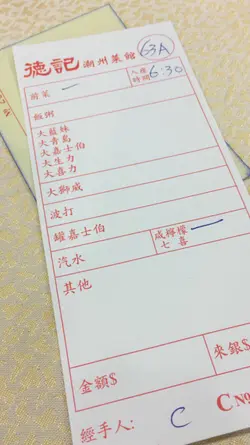 德記潮州菜館 63A
前菜 一 入座時間 6:30
飯粥
大藍妹
大青島
大嘉士伯
大生力
大喜力
大獅威
波打
罐嘉士伯 咸檸檬七喜 一
汽水
其他
金額$ 來銀$
經手人: C C No